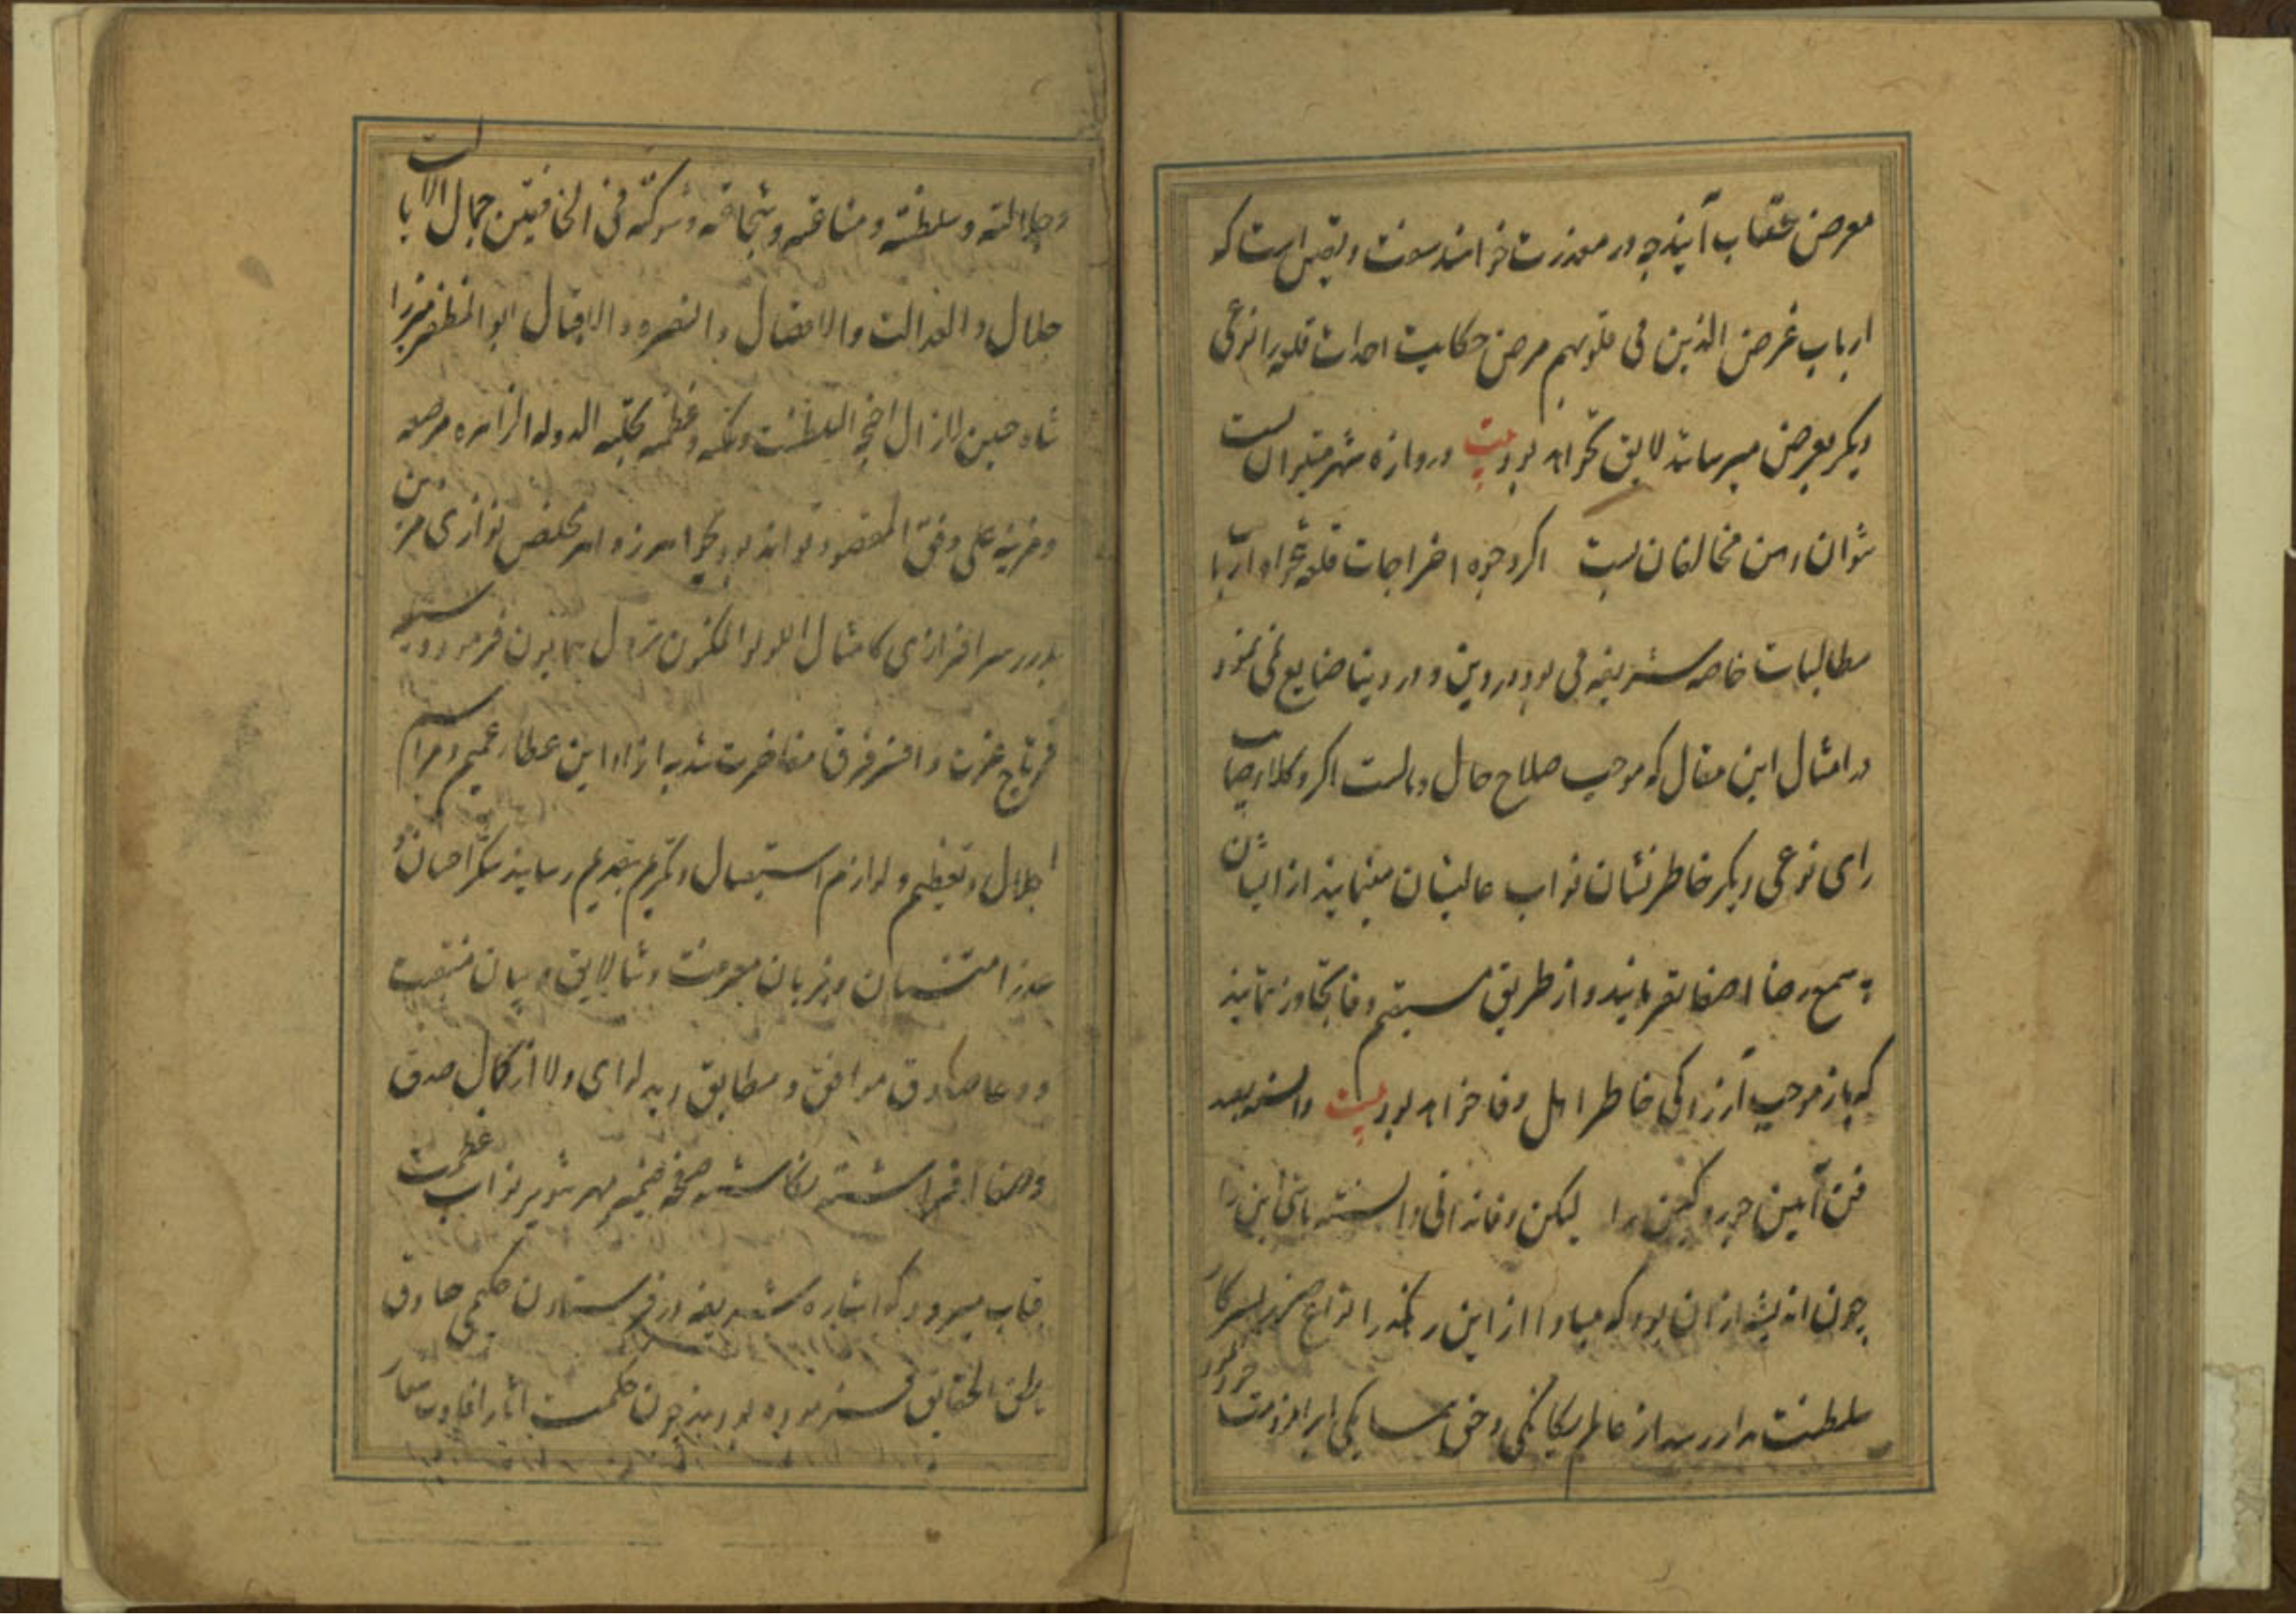 معرض عقاب آیند چه در معذرت خواهند سفت و یقین است که
ارباب غرض الذین فی قلوبهم مرض حکایت احداث قلعه را نوعی
دیگر بعرض میرسانند لایق نخواهد بود بیت دروازه شهر میتوان بست
نتوان دهن مخالفان بست اگر وجوه اخراجات قلعه
مطالبات خاصه شریفه می بود در دین و در دنیا ضایع نمی نمود
در امثال این مقال که موجب صلاح حال و مالست اگر وکلا صایب
رای نوعی دیگر خاطر نشان نواب عالیشان مینمایند از ایشان
به سمع رضا اصغا نفرمایند و از طریق مستقیم وفا تجاوز ننمایند
که باز موجب آزردگی خاطر اهل وفا خواهد بود بیت دانسته بعد
فن آیین جور و کین را لیکن وفا ندانی دانسته باشی این را
چون اندیشه از ان بود که مبادا از این رهگذر انواع ضرر بسرکار
سلطنت مدار رسد از عالم یگانگی و حق همسایگی ابراز
و جلالته و سلطنته و مناعته و شجاعته و شوکته فی الخافقین جمال الایالت
جلال و العدالت و الافضال و النصره و الاقبال ابو المظفر میرزا
شاه حسین لازال السلطنت و عظمه الدوله الزاهره مرصعه
و مزینه علی وفق المقصود نوازی من
بدرر سرافرازی کامثال اللولو المکنون نزول همایون فرمود و زینت
فرتاج عزت و افسر فرق مفاخرت شد به ازاء این عطاء عمیم و مراسم
اجلال و تعظیم و لوازم استقبال و تکریم بتقدیم رسانید شکر احسان و
عذر امتنان و بزبان معرفت و ثنا لایق و بیان منقبت
و دعا صادق موافق و مطابق بد لوای ولا از کمال صدق
و صفا افراشته نگاشته صحیفه ضمیر مهر تنویر نواب عظمت
قباب میرود که اشاره شریفه در فرستادن حکیمی حاذق
باطن الحقایق فرموده بودند چون حکمت اثار افادت شعار